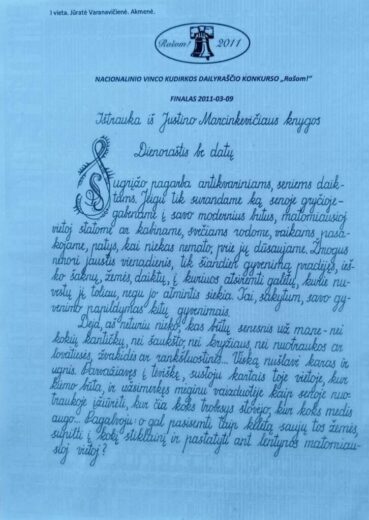 I vieta. Jūratė Varanavičienė. Akmenė.
Rašom! 2011
NACIONALINIO VINCO KUDIRKOS DAILYRAŠČIO KONKURSO „Rašom!"
FINALAS 2011-03-09
Ištrauka iš Justino Marcinkevičiaus knygos
Dienoraštis be datų
Sugrįžo pagarba antikvariniams, seniems daik-
tams. Jeigu tik surandame ką senoje gryčioje-
gabename į savo modernius butus, matomiausioj
vietoj statome ar kabiname, svečiams rodome, vaikams pasa-
kojame, patys, kai niekas nemato, prie jų dūsaujame. Žmogus
nenori jaustis vienadienis, tik šiandien gyvenimą pradėjęs, ieš-
ko šaknų, žemės, daiktų, į kuriuos atsiremti galėtų, kurie nu-
vestų jį toliau, negu jo atmintis siekia. Tai, sakytum, savo gy-
venimo papildymas kitų gyvenimais.
Deja, aš neturiu nieko, kas būtų senesnis už mane - nei
kokių kantičkų, nei šaukšto, nei kryžiaus, nei nuotraukos ar
lovatiesės, žvakidės ar rankšluostinės... Viską nušlavė karas ir
ugnis. Parvažiavęs į tėviškę, sustoju kartais toje vietoje, kur
kiemo būta, ir užsimerkęs mėginu vaizduotėje kaip sertoje nuo-
traukoje įžiūrėti, kur čia koks trobesys stovėjo, kur koks medis
augo... Pagalvoju: o gal pasisemti taip kleta saujų tos žemės,
supilti į kokį stiklainį ir pastatyti ant lentynos matomiau-
sioj vietoj?